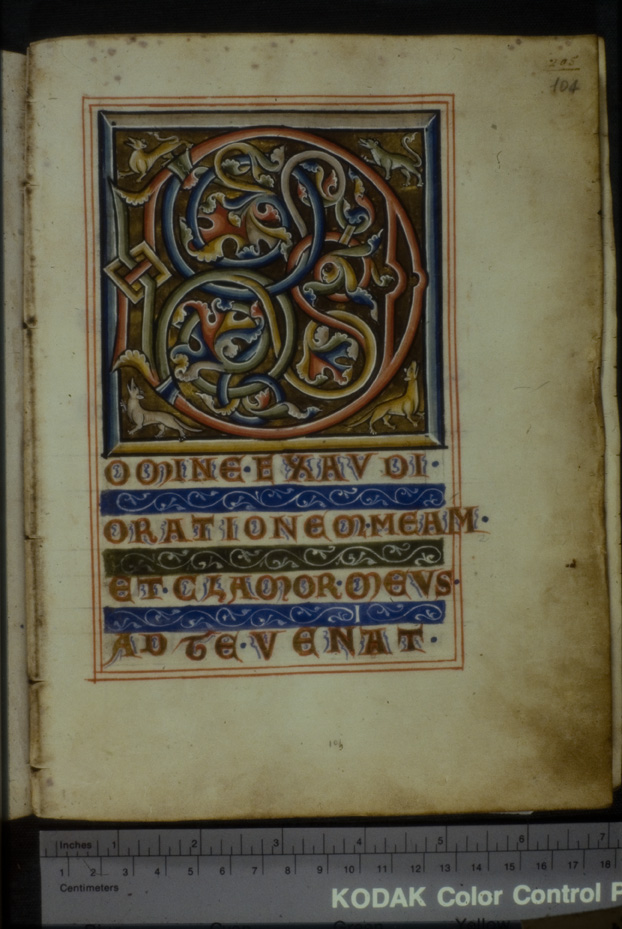 205
104
D
OMINE·EXAVDI·
ORATIONEM·MEAM·
ET·CLAMOR·MEVS·
AD TE·VENAT·
Inches 1 2 3 4 5 6 7
1 2 3 4 5 6 7 8 9 10 11 12 13 14 15 16 17 18
Centimeters
KODAK Color Control P
Yellow